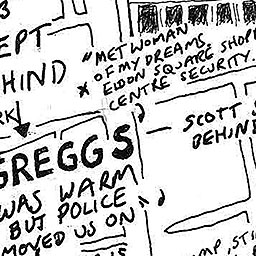 3
EPT
HIND
RK
"MET WOMAN
OF MY DREAMS
* ELDON SQUARE SHOPP
CENTRE SECURITY.
GREGGS
WAS WARM
BUT POLICE
MOVED US ON"
SCOTT S
BEHIN